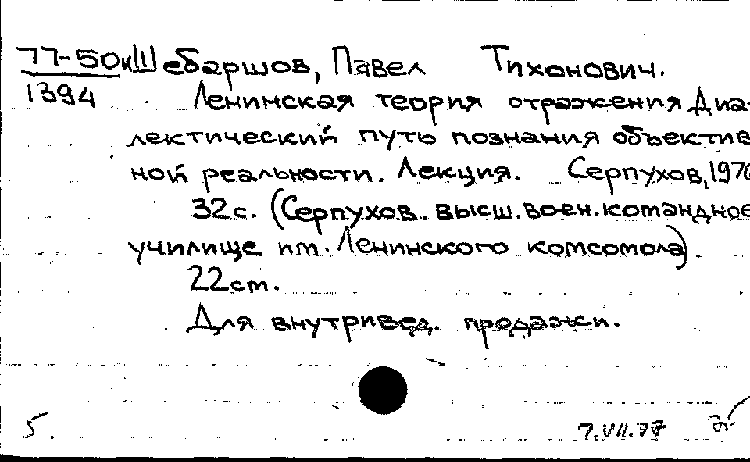 77-50кШебаршов, Павел Тихонович.
1394 Ленинская теория отражения Диа-
лектический путь познания объектив
ной реальности. Лекция. Серпухов, 1976
32с. (Серпухов. высш. воен. командное
училище им. Ленинского комсомола).
22см.
Для внутривед. продажи.
5. 7.VII.77